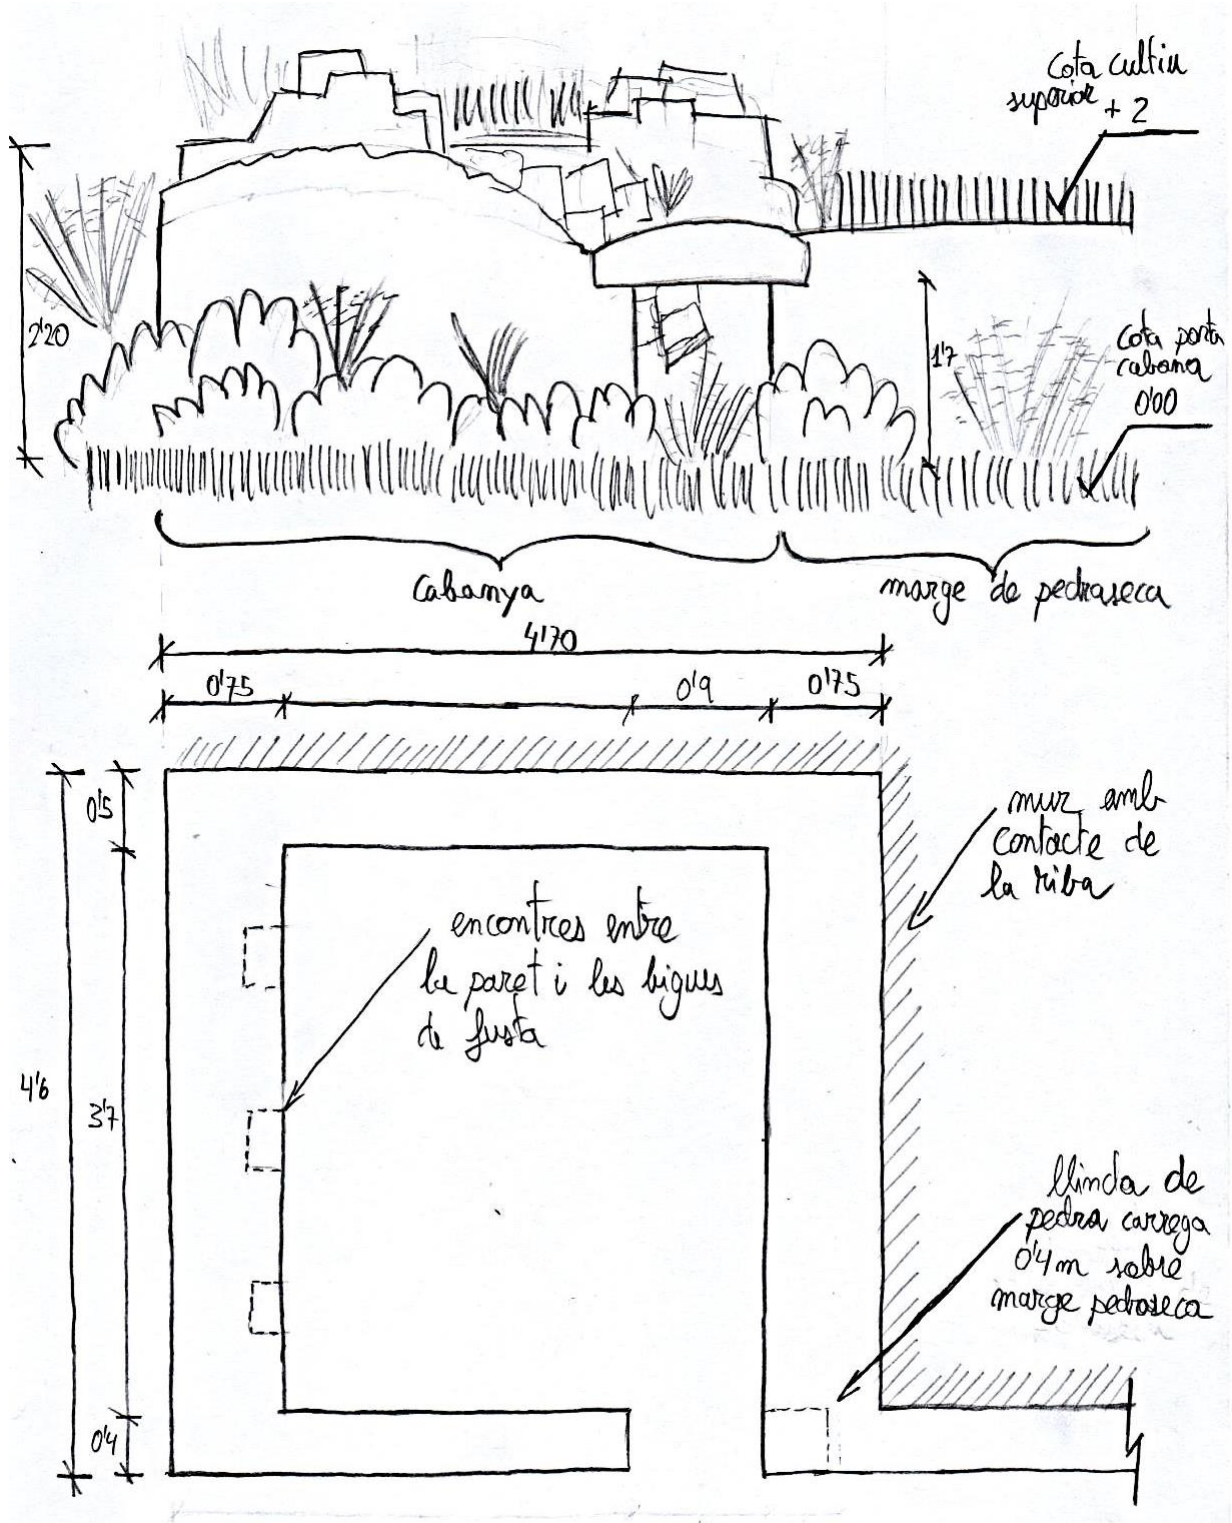 Cota cultiu
superior + 2
2'20
1'7
Cota porta
cabana
0'00
Cabanya
marge de pedraseca
4'70
0'75
0'9
0'75
0'5
mur amb
contacte de
la riba
encontres entre
la paret i les bigues
de fusta
4'6
3'7
llinda de
pedra carrega
0'4m sobre
marge pedraseca
0'4